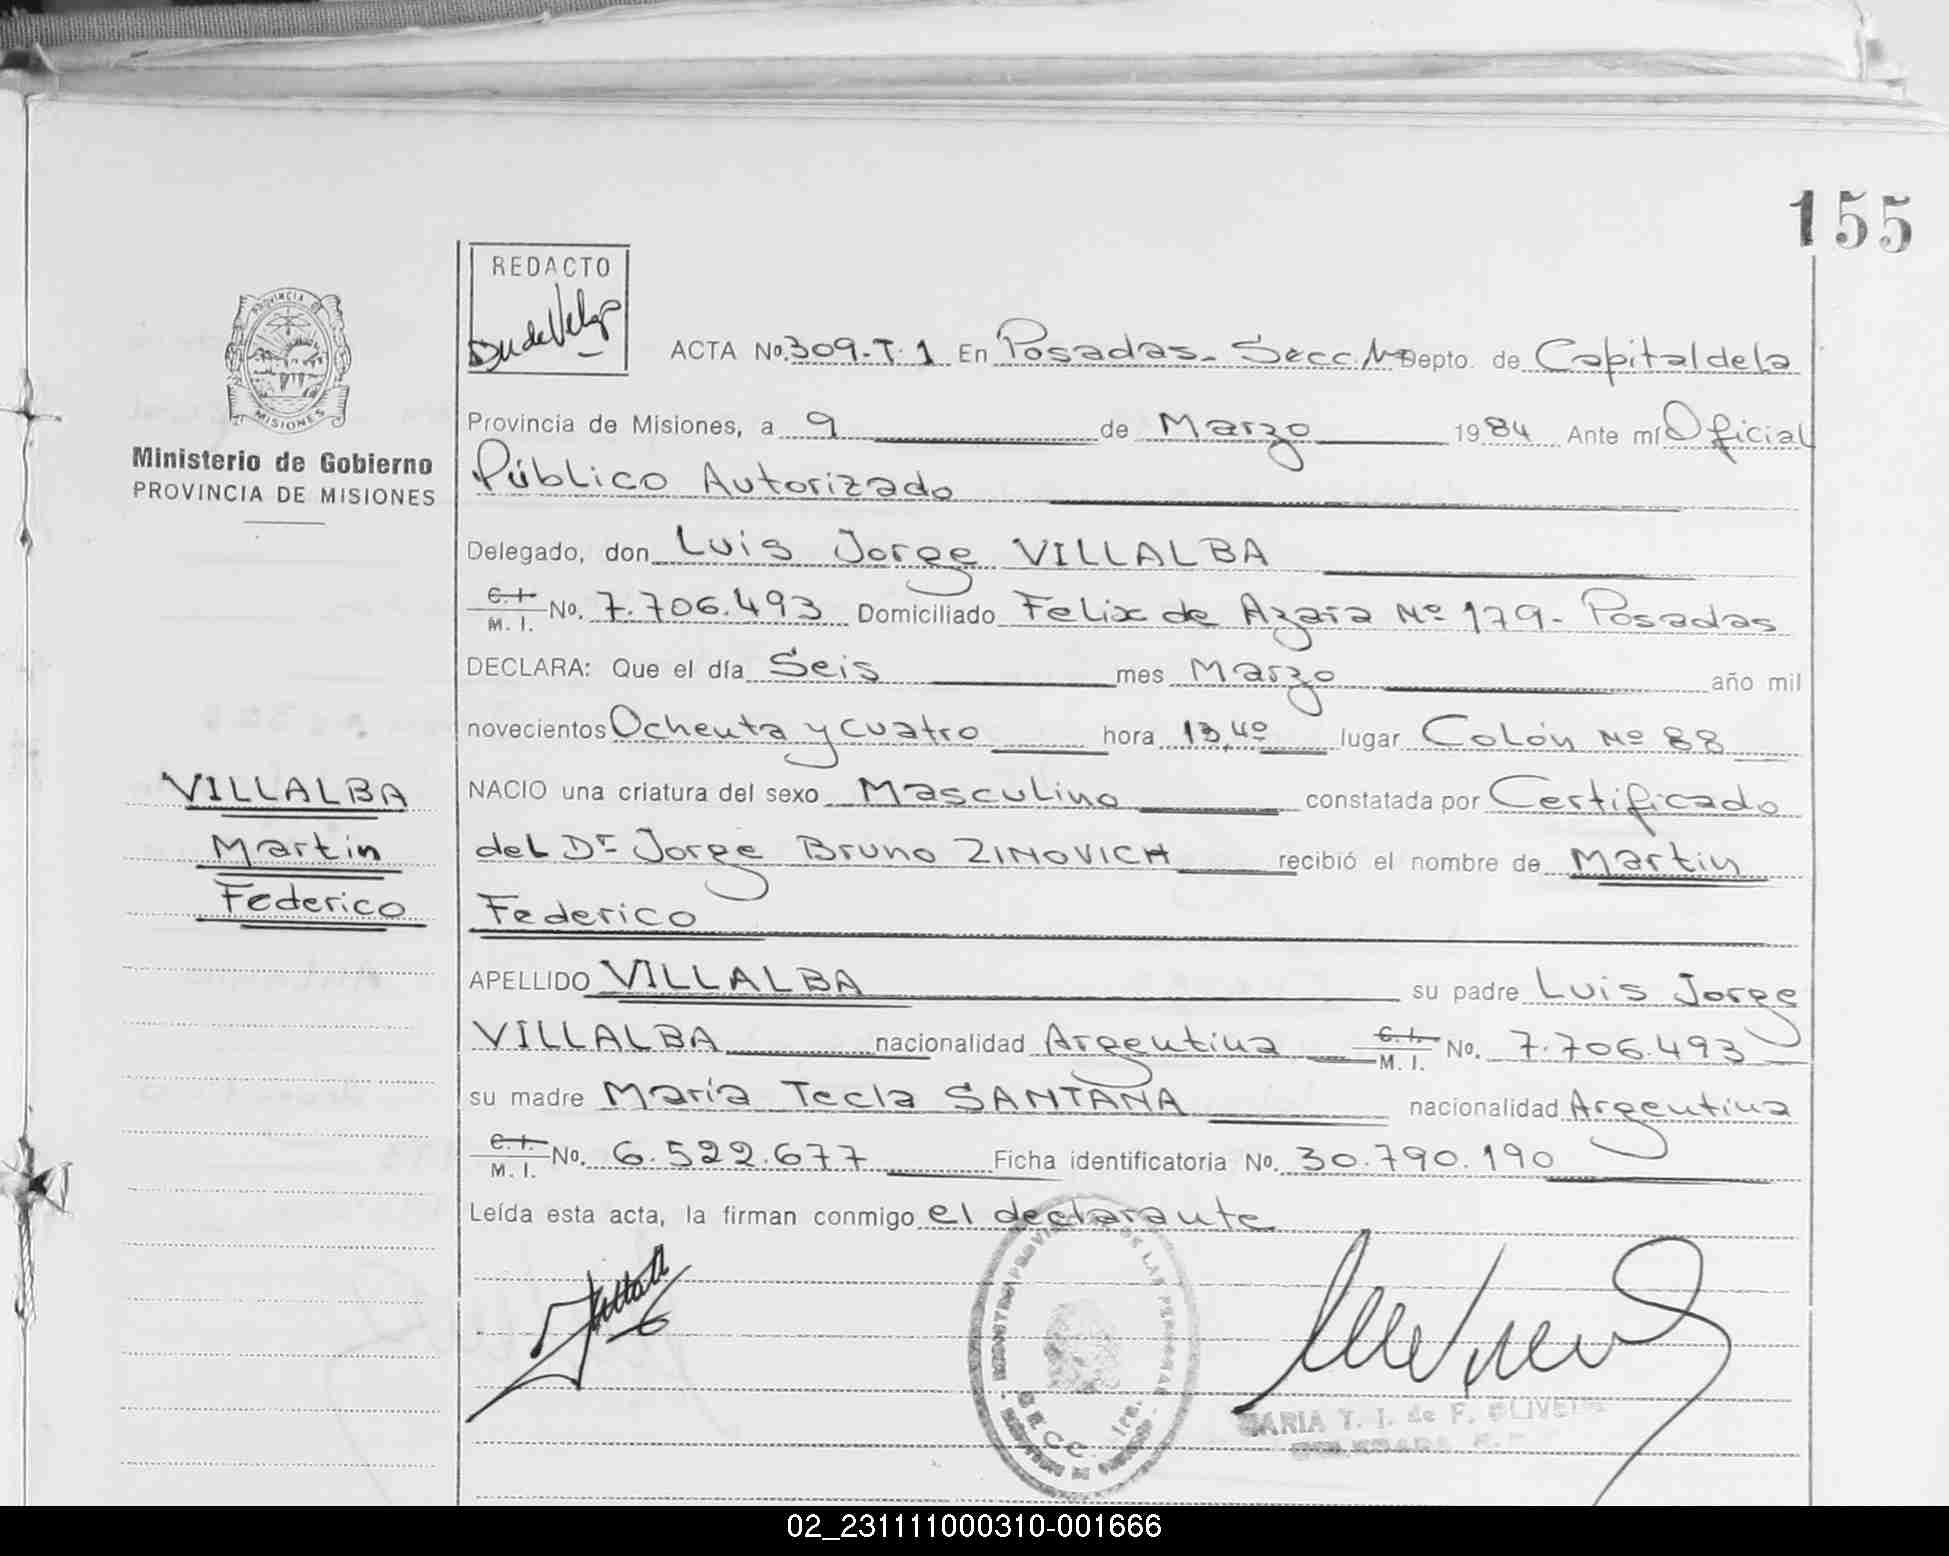 155
REDACTO
PROVINCIA DE
MISIONES
Ministerio de Gobierno
PROVINCIA DE MISIONES
ACTA No. 309-T. 1 En Posadas- Secc. Depto. de Capital de la
Provincia de Misiones, a 9 de Marzo 1984 Ante mí Oficial
Público Autorizado
Delegado, don Luis Jorge VILLALBA
C. I. M. I. No. 7.706.493 Domiciliado Felix de Azara Nº 179- Posadas
DECLARA: Que el día Seis mes Marzo año mil
novecientos Ochenta y cuatro hora 13,40 lugar Colón Nº 88
VILLALBA
Martin
Federico
NACIO una criatura del sexo Masculino constatada por Certificado
del Dr Jorge Bruno ZINOVICH recibió el nombre de Martin
Federico
APELLIDO VILLALBA su padre Luis Jorge
VILLALBA nacionalidad Argentina C. I. M. I. No. 7.706.493
su madre María Tecla SANTANA nacionalidad Argentina
C. I. M. I. No. 6.522.677 Ficha identificatoria No. 30.790.190
Leída esta acta, la firman conmigo el declarante
DE LAS PERSONAS
SECC. 1ra.
MARIA Y. I. de F. OLIVEIRA
02_231111000310-001666